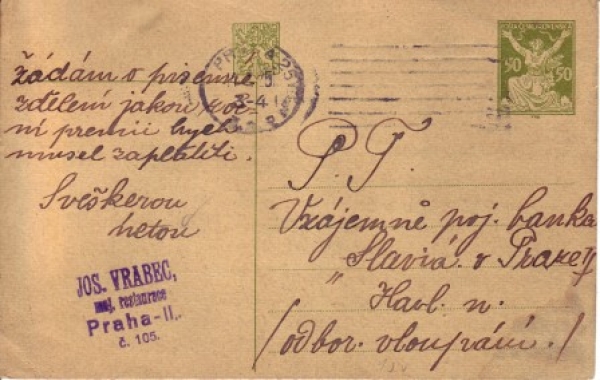 žádám o písemné
zdělení jakou roč
ní premii bych
musel zaplatiti.
S veškerou
úctou
JOS. VRABEC,
maj. restaurace
Praha-II.
č. 105.
50 50
P. T.
Vzájemně poj. banka
"Slavia" v Praze II
Havl. n.
(odbor. vloupání.)